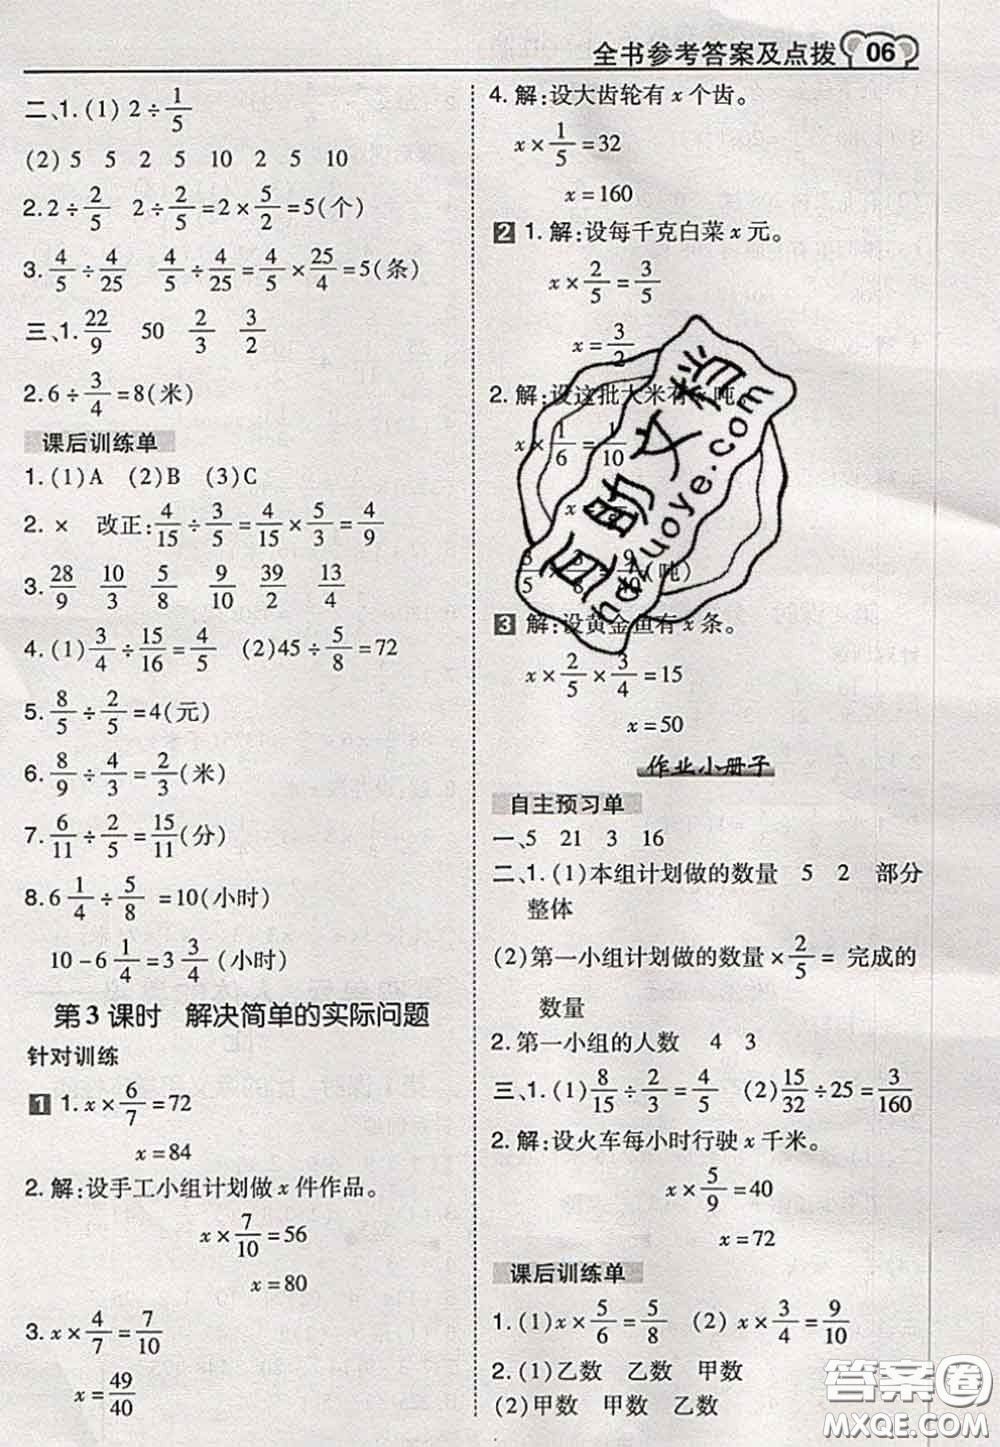 全书参考答案及点拨 06
二、1. (1) 2÷1/5
(2) 5 5 2 5 10 2 5 10
2. 2÷2/5 2÷2/5=2×5/2=5(个)
3. 4/5÷4/25 4/5÷4/25=4/5×25/4=5(条)
三、1. 22/9 50 2/3 3/2
2. 6÷3/4=8(米)
课后训练单
1. (1)A (2)B (3)C
2. × 改正:4/15÷3/5=4/15×5/3=4/9
3. 28/9 10/3 5/8 9/10 39/2 13/12
4. (1)3/4÷15/16=4/5 (2)45÷5/8=72
5. 8/5÷2/5=4(元)
6. 8/9÷4/3=2/3(米)
7. 6/11÷2/5=15/11(分)
8. 6 1/4÷5/8=10(小时)
10-6 1/4=3 3/4(小时)
第3课时 解决简单的实际问题
针对训练
1 1. x×6/7=72
x=84
2. 解:设手工小组计划做x件作品。
x×7/10=56
x=80
3. x×4/7=7/10
x=49/40
4. 解:设大齿轮有x个齿。
x×1/5=32
x=160
2 1. 解:设每千克白菜x元。
x×2/5=3/5
x=3/2
2. 解:设这批大米有x吨。
x×1/6=1/10
x
(吨)
3 解:设黄金鱼有x条。
x×2/5×3/4=15
x=50
作业小册子
自主预习单
一、5 21 3 16
二、1. (1)本组计划做的数量 5 2 部分
整体
(2)第一小组计划做的数量×2/5= 完成的
数量
2. 第一小组的人数 4 3
三、1. (1)8/15÷2/3=4/5 (2)15/32÷25=3/160
2. 解:设火车每小时行驶x千米。
x×5/9=40
x=72
课后训练单
1. (1)x×5/6=5/8 (2) x×3/4=9/10
2. (1)乙数 乙数 甲数
(2)甲数 甲数 乙数
互助文档
huzuoye.com
答案圈
MXQE.COM